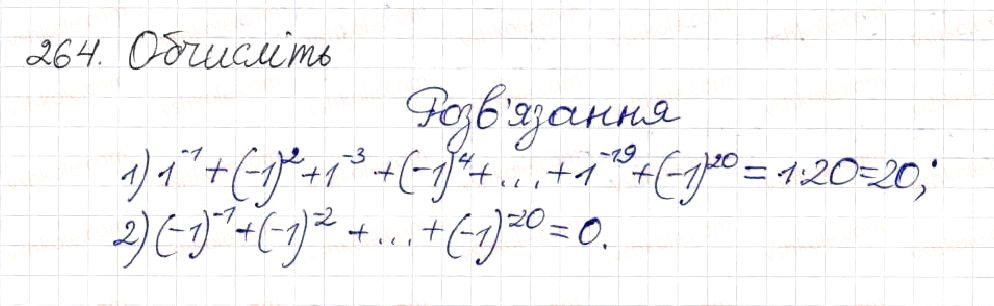 264. Обчисліть
Розв'язання
1) 1⁻¹ + (-1)² + 1⁻³ + (-1)⁴ + ... + 1⁻¹⁹ + (-1)²⁰ = 1·20 = 20;
2) (-1)⁻¹ + (-1)⁻² + ... + (-1)⁻²⁰ = 0.